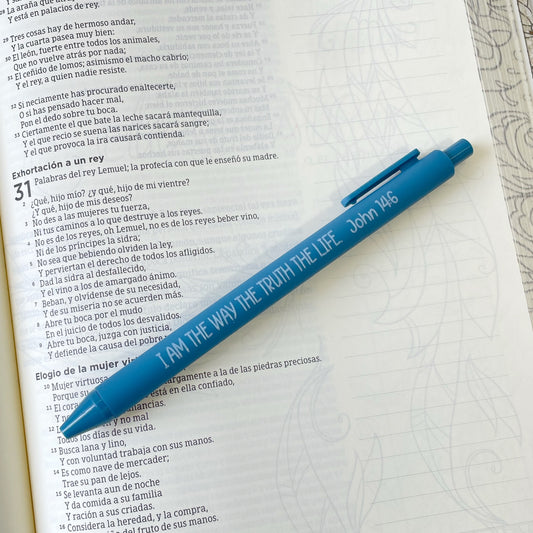 28 La araña que
Y está en palacios de rey.
29 Tres cosas hay de hermoso andar,
Y la cuarta pasea muy bien:
30 El león, fuerte entre todos los animales,
Que no vuelve atrás por nada;
31 El ceñido de lomos; asimismo el macho cabrío;
Y el rey, a quien nadie resiste.
32 Si neciamente has procurado enaltecerte,
O si has pensado hacer mal,
Pon el dedo sobre tu boca.
33 Ciertamente el que bate la leche sacará mantequilla,
Y el que recio se suena las narices sacará sangre;
Y el que provoca la ira causará contienda.
Exhortación a un rey
31 Palabras del rey Lemuel; la profecía con que le enseñó su madre.
2 ¿Qué, hijo mío? ¿y qué, hijo de mi vientre?
¿Y qué, hijo de mis deseos?
3 No des a las mujeres tu fuerza,
Ni tus caminos a lo que destruye a los reyes.
4 No es de los reyes, oh Lemuel, no es de los reyes beber vino,
Ni de los príncipes la sidra;
5 No sea que bebiendo olviden la ley,
Y perviertan el derecho de todos los afligidos.
6 Dad la sidra al desfallecido,
Y el vino a los de amargado ánimo.
7 Beban, y olvídense de su necesidad,
Y de su miseria no se acuerden más.
8 Abre tu boca por el mudo
En el juicio de todos los desvalidos.
9 Abre tu boca, juzga con justicia,
Y defiende la causa del pobre
Elogio de la mujer
10 Mujer virtuosa
largamente a la de las piedras preciosas.
11 El
está en ella confiado,
ganancias.
12
y no mal
Todos los días de su vida.
13 Busca lana y lino,
Y con voluntad trabaja con sus manos.
14 Es como nave de mercader;
Trae su pan de lejos.
15 Se levanta aun de noche
Y da comida a su familia
Y ración a sus criadas.
16 Considera la heredad, y la compra,
del fruto de sus manos.
I AM THE WAY THE TRUTH THE LIFE John 14:6